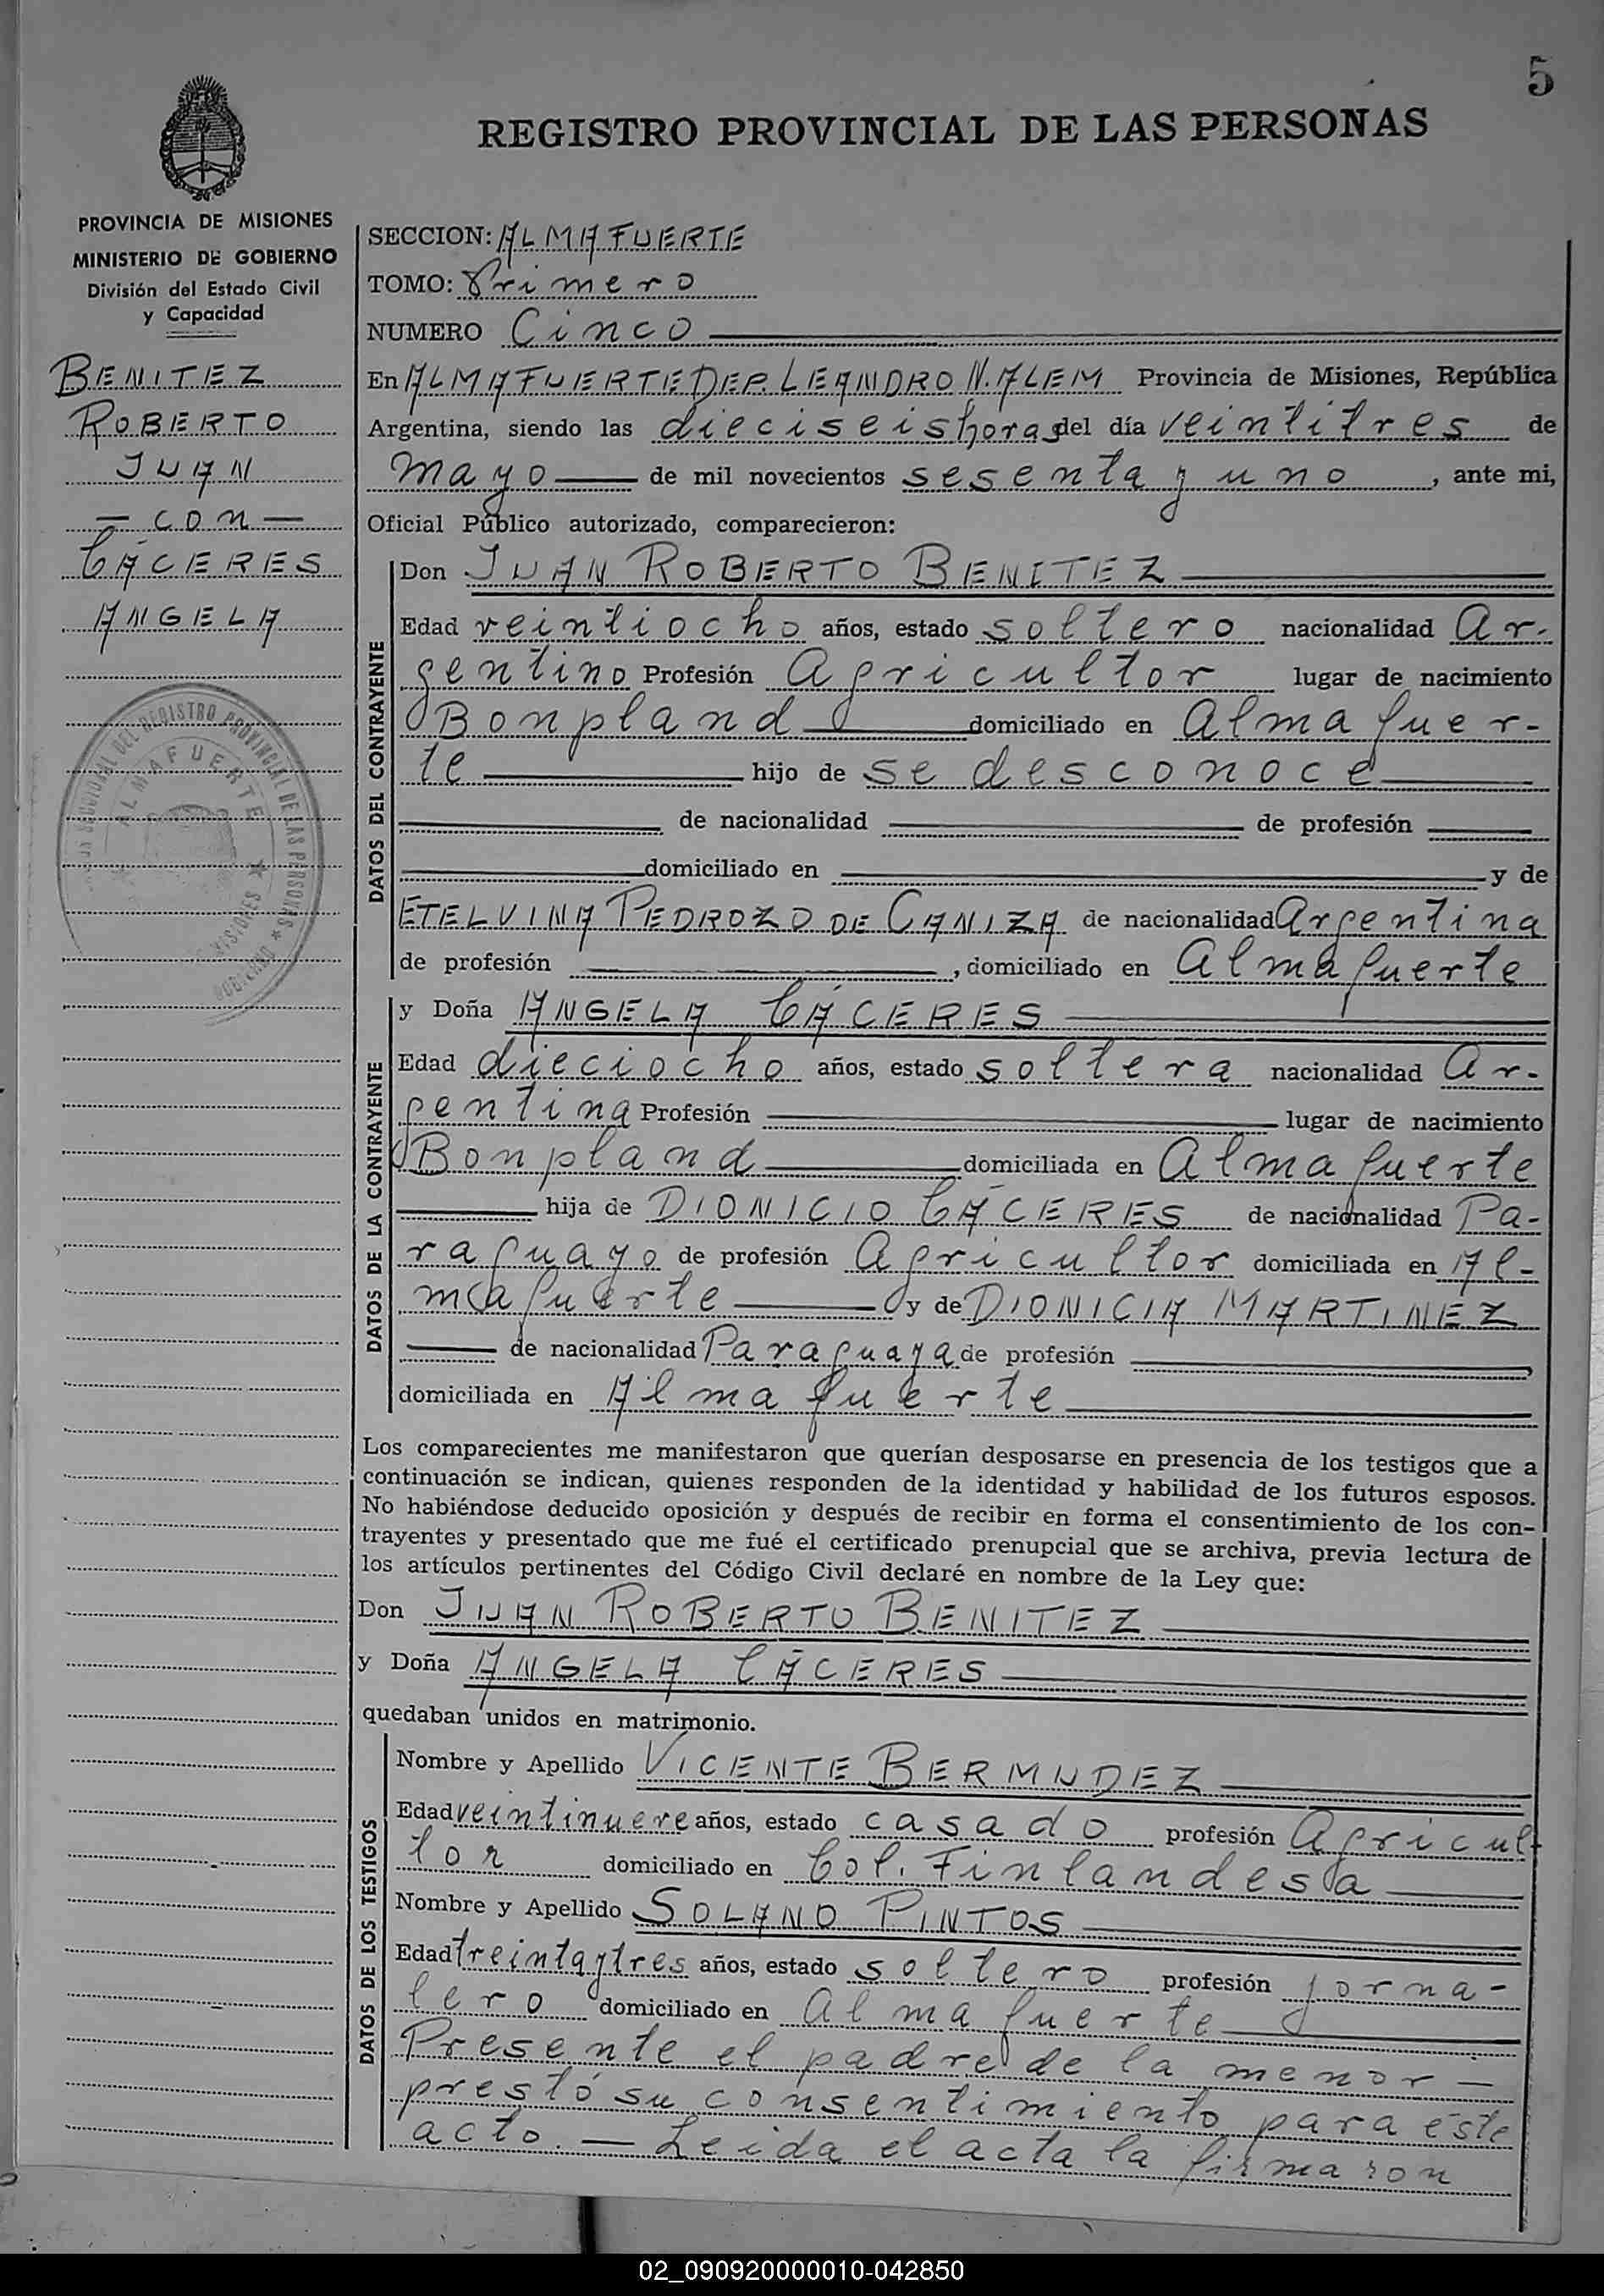 5
REGISTRO PROVINCIAL DE LAS PERSONAS
PROVINCIA DE MISIONES
MINISTERIO DE GOBIERNO
División del Estado Civil
y Capacidad
BENITEZ
ROBERTO
JUAN
— con —
CÁCERES
ANGELA
ALMAFUERTE
MISIONES
SECCION: ALMAFUERTE
TOMO: Primero
NUMERO Cinco
En ALMAFUERTE DEP. LEANDRO N. ALEM Provincia de Misiones, República
Argentina, siendo las dieciseis horas del día veintitres de
mayo de mil novecientos sesenta y uno, ante mi,
Oficial Público autorizado, comparecieron:
DATOS DEL CONTRAYENTE
Don JUAN ROBERTO BENITEZ
Edad veintiocho años, estado soltero nacionalidad Ar-
gentino Profesión Agricultor lugar de nacimiento
Bonpland domiciliado en Almafuer-
te hijo de se desconoce
de nacionalidad de profesión
domiciliado en y de
ETELVINA PEDROZO DE CANIZA de nacionalidad Argentina
de profesión , domiciliado en Almafuerte
DATOS DE LA CONTRAYENTE
y Doña ANGELA CÁCERES
Edad dieciocho años, estado soltera nacionalidad Ar-
gentina Profesión lugar de nacimiento
Bonpland domiciliada en Almafuerte
hija de DIONICIO CÁCERES de nacionalidad Pa-
raguayo de profesión Agricultor domiciliada en Al-
mafuerte y de DIONICIA MARTINEZ
de nacionalidad Paraguaya de profesión
domiciliada en Almafuerte
Los comparecientes me manifestaron que querían desposarse en presencia de los testigos que a
continuación se indican, quienes responden de la identidad y habilidad de los futuros esposos.
No habiéndose deducido oposición y después de recibir en forma el consentimiento de los con-
trayentes y presentado que me fué el certificado prenupcial que se archiva, previa lectura de
los artículos pertinentes del Código Civil declaré en nombre de la Ley que:
Don JUAN ROBERTO BENITEZ
y Doña ANGELA CÁCERES
quedaban unidos en matrimonio.
DATOS DE LOS TESTIGOS
Nombre y Apellido VICENTE BERMUDEZ
Edad veintinueve años, estado casado profesión Agricul-
tor domiciliado en Col. Finlandesa
Nombre y Apellido SOLANO PINTOS
Edad treinta y tres años, estado soltero profesión jorna-
lero domiciliado en Almafuerte
Presente el padre de la menor —
prestó su consentimiento para éste
acto. — Leida el acta la firmaron
02_090920000010-042850